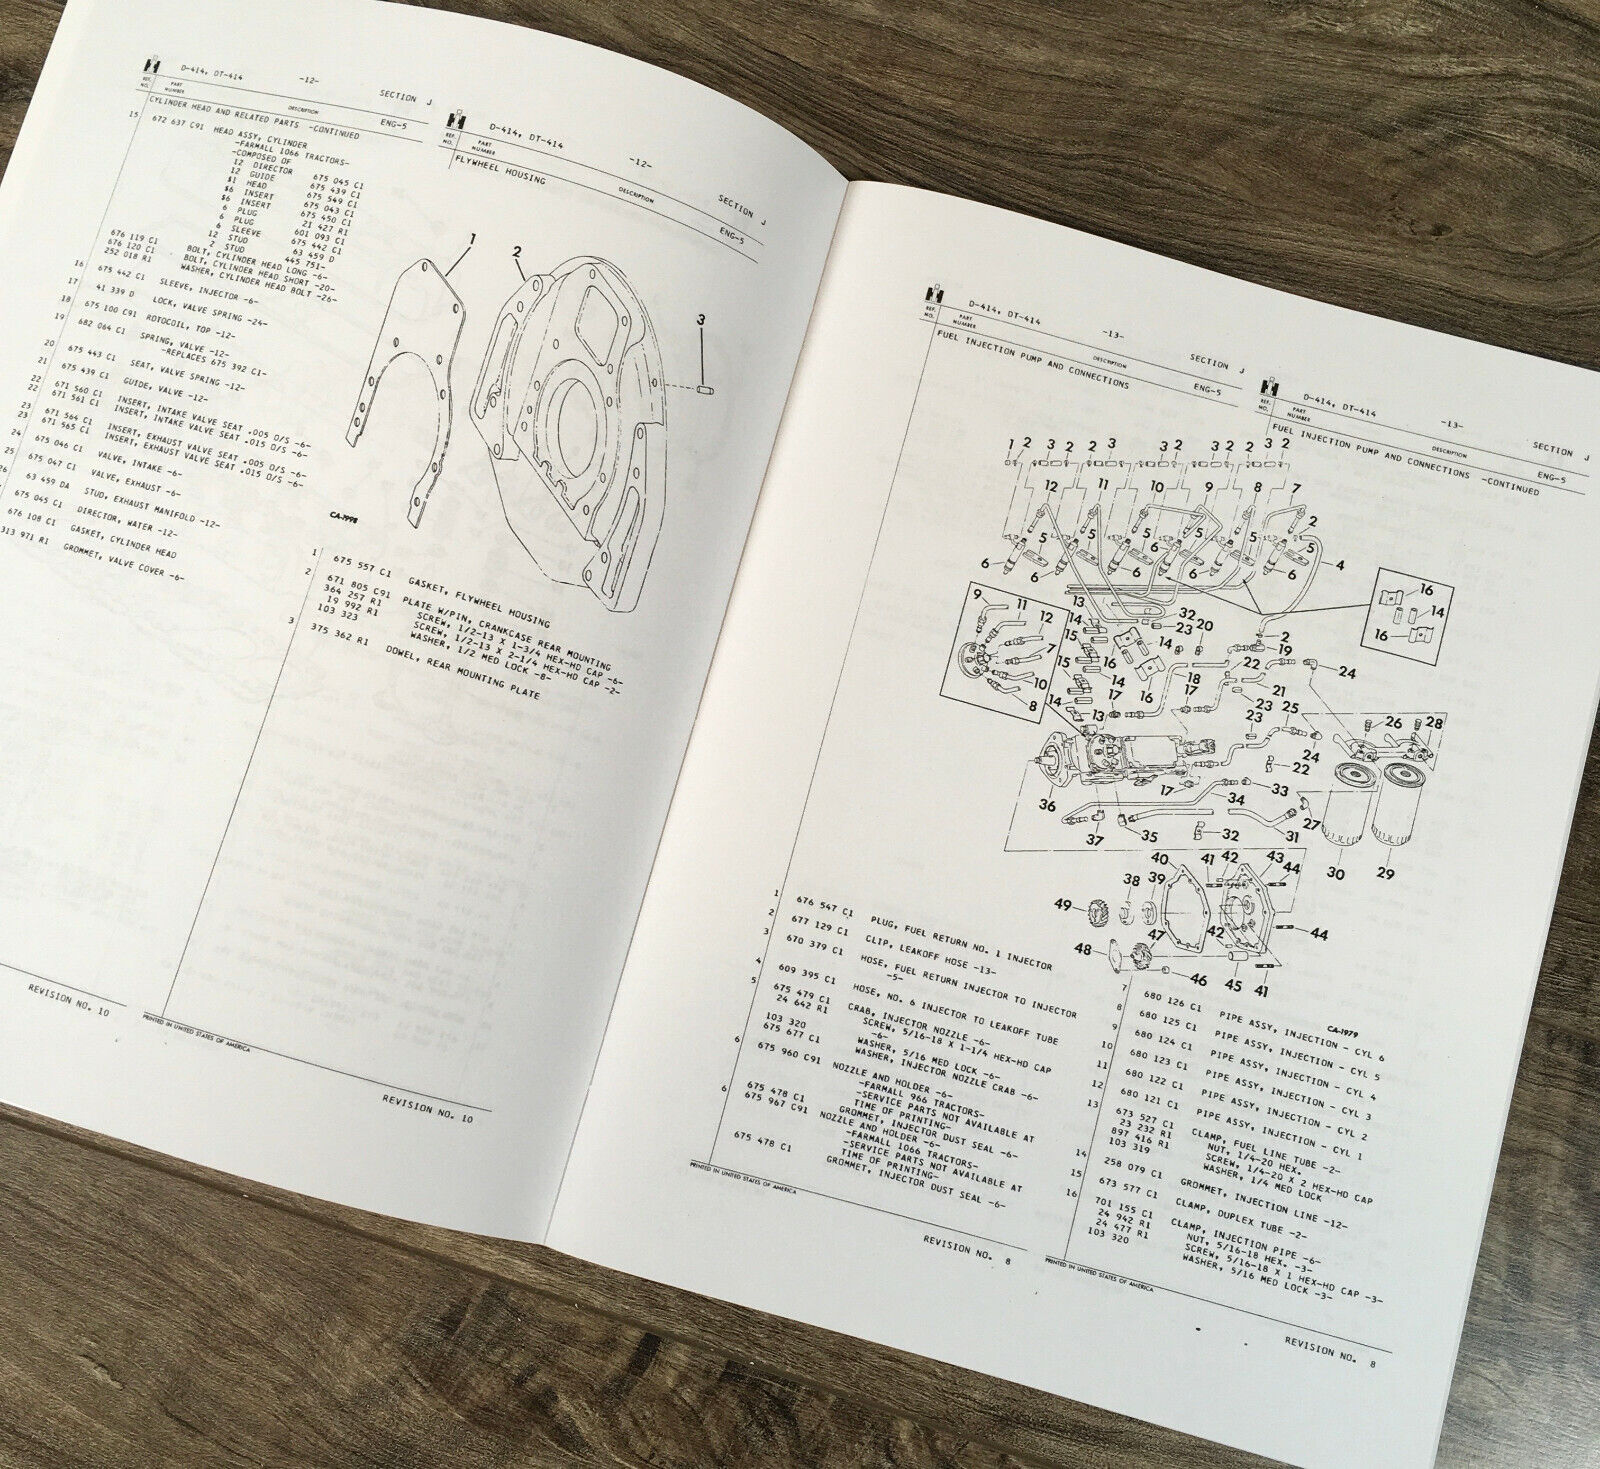 D-414, DT-414 -12- SECTION J
REF. NO. PART NUMBER DESCRIPTION ENG-5
CYLINDER HEAD AND RELATED PARTS -CONTINUED
15 672 637 C91 HEAD ASSY, CYLINDER
-FARMALL 1066 TRACTORS-
-COMPOSED OF
12 DIRECTOR 675 045 C1
12 GUIDE 675 439 C1
$1 HEAD 675 549 C1
$6 INSERT 675 043 C1
$6 INSERT 675 450 C1
6 PLUG 21 427 R1
6 PLUG 601 093 C1
6 SLEEVE 675 442 C1
12 STUD 63 459 D
2 STUD 445 751-
676 119 C1 BOLT, CYLINDER HEAD LONG -6-
676 120 C1 BOLT, CYLINDER HEAD SHORT -20-
252 018 R1 WASHER, CYLINDER HEAD BOLT -26-
16 675 442 C1 SLEEVE, INJECTOR -6-
17 41 339 D LOCK, VALVE SPRING -24-
18 675 100 C91 ROTOCOIL, TOP -12-
19 682 064 C1 SPRING, VALVE -12-
-REPLACES 675 392 C1-
20 675 443 C1 SEAT, VALVE SPRING -12-
21 675 439 C1 GUIDE, VALVE -12-
22 671 560 C1 INSERT, INTAKE VALVE SEAT .005 O/S -6-
22 671 561 C1 INSERT, INTAKE VALVE SEAT .015 O/S -6-
23 671 564 C1 INSERT, EXHAUST VALVE SEAT .005 O/S -6-
23 671 565 C1 INSERT, EXHAUST VALVE SEAT .015 O/S -6-
24 675 046 C1 VALVE, INTAKE -6-
25 675 047 C1 VALVE, EXHAUST -6-
26 63 459 DA STUD, EXHAUST MANIFOLD -12-
675 045 C1 DIRECTOR, WATER -12-
676 108 C1 GASKET, CYLINDER HEAD
313 971 R1 GROMMET, VALVE COVER -6-
REVISION NO. 10
D-414, DT-414 -12- SECTION J
REF. NO. PART NUMBER DESCRIPTION ENG-5
FLYWHEEL HOUSING
1 2 3
CA-1998
1 675 557 C1 GASKET, FLYWHEEL HOUSING
2 671 805 C91 PLATE W/PIN, CRANKCASE REAR MOUNTING
364 257 R1 SCREW, 1/2-13 X 1-3/4 HEX-HD CAP -6-
19 992 R1 SCREW, 1/2-13 X 2-1/4 HEX-HD CAP -2-
103 323 WASHER, 1/2 MED LOCK -8-
3 375 362 R1 DOWEL, REAR MOUNTING PLATE
PRINTED IN UNITED STATES OF AMERICA
REVISION NO. 10
D-414, DT-414 -13- SECTION J
REF. NO. PART NUMBER DESCRIPTION ENG-5
FUEL INJECTION PUMP AND CONNECTIONS
1 2 3 2 2 3 2 3 2 3 2 2 3 2
12 11 10 9 8 7
2
5 5 5 5 5 5
6 6 6 6 6 6
4
16 14 16
9 11 12 7 10 8
13 14 15 15 14 13
32 23 14 20
16 14 17 16 18 17
2 19 22 21 24
23 23 25 26 28
24 22
17 33 34
36 37 35 32 31 27 30 29
40 41 42 43 44
38 39
49 47 42 44
48 46 45 41
CA-1979
1 676 547 C1 PLUG, FUEL RETURN NO. 1 INJECTOR
2 677 129 C1 CLIP, LEAKOFF HOSE -13-
3 670 379 C1 HOSE, FUEL RETURN INJECTOR TO INJECTOR
-5-
4 609 395 C1 HOSE, NO. 6 INJECTOR TO LEAKOFF TUBE
5 675 479 C1 CRAB, INJECTOR NOZZLE -6-
24 642 R1 SCREW, 5/16-18 X 1-1/4 HEX-HD CAP
-6-
103 320 WASHER, 5/16 MED LOCK -6-
675 677 C1 WASHER, INJECTOR NOZZLE CRAB -6-
6 675 960 C91 NOZZLE AND HOLDER -6-
-FARMALL 966 TRACTORS-
-SERVICE PARTS NOT AVAILABLE AT
TIME OF PRINTING-
675 478 C1 GROMMET, INJECTOR DUST SEAL -6-
6 675 967 C91 NOZZLE AND HOLDER -6-
-FARMALL 1066 TRACTORS-
-SERVICE PARTS NOT AVAILABLE AT
TIME OF PRINTING-
675 478 C1 GROMMET, INJECTOR DUST SEAL -6-
PRINTED IN UNITED STATES OF AMERICA
REVISION NO. 8
D-414, DT-414 -13- SECTION J
REF. NO. PART NUMBER DESCRIPTION ENG-5
FUEL INJECTION PUMP AND CONNECTIONS -CONTINUED
7 680 126 C1 PIPE ASSY, INJECTION - CYL 6
8 680 125 C1 PIPE ASSY, INJECTION - CYL 5
9 680 124 C1 PIPE ASSY, INJECTION - CYL 4
10 680 123 C1 PIPE ASSY, INJECTION - CYL 3
11 680 122 C1 PIPE ASSY, INJECTION - CYL 2
12 680 121 C1 PIPE ASSY, INJECTION - CYL 1
13 673 527 C1 CLAMP, FUEL LINE TUBE -2-
23 232 R1 NUT, 1/4-20 HEX.
897 416 R1 SCREW, 1/4-20 X 2 HEX-HD CAP
103 319 WASHER, 1/4 MED LOCK
14 258 079 C1 GROMMET, INJECTION LINE -12-
15 673 577 C1 CLAMP, DUPLEX TUBE -2-
16 701 155 C1 CLAMP, INJECTION PIPE -6-
24 942 R1 NUT, 5/16-18 HEX. -3-
24 477 R1 SCREW, 5/16-18 X 1 HEX-HD CAP -3-
103 320 WASHER, 5/16 MED LOCK -3-
PRINTED IN UNITED STATES OF AMERICA
REVISION NO. 8